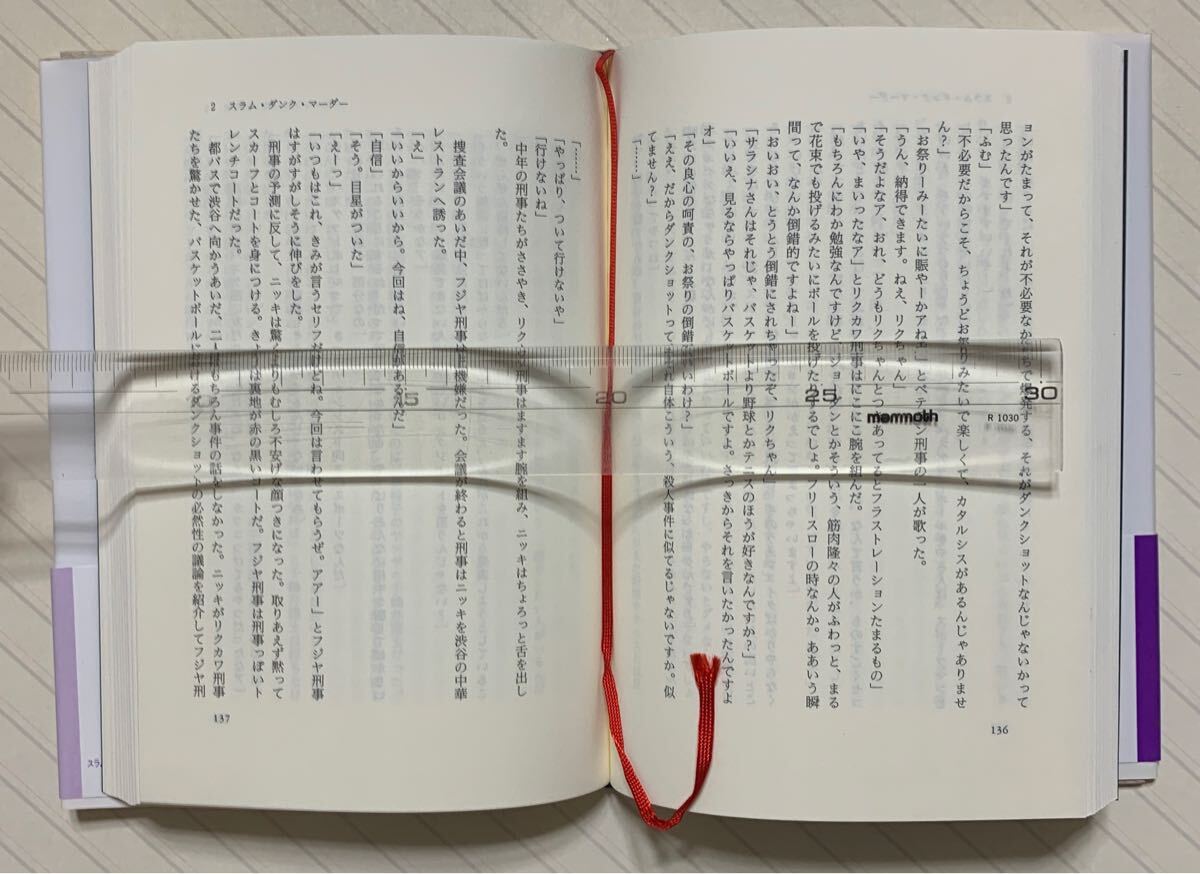 ョンがたまって、それが不必要なかたちで爆発する、それがダンクショットなんじゃないかって
思ったんです」
「ふむ」
「不必要だからこそ、ちょうどお祭りみたいで楽しくて、カタルシスがあるんじゃありませ
ん?」
「お祭りーみーたいに賑やーかアねェ」とベテラン刑事の一人が歌った。
「うん、納得できます。ねえ、リクちゃん」
「そうだよなア、おれ、どうもリクちゃんとつきあってるとフラストレーションたまるもの」
「いや、まいったなア」とリクカワ刑事はにこにこ腕を組んだ。
「もちろんにわか勉強なんですけど、ジョーダンとかそういう、筋肉隆々の人がふわっと、まる
で花束でも投げるみたいにボールを投げたりするでしょ。フリースローの時なんか。ああいう瞬
間って、なんか倒錯的ですよねー」
「おいおい、とうとう倒錯にされちゃったぞ、リクちゃん」
「サラシナさんはそれじゃ、バスケットより野球とかテニスのほうが好きなんですか?」
「いいえ、見るならやっぱりバスケットボールですよ。さっきからそれを言いたかったんですよ
オ」
「その良心の呵責の、お祭りの倒錯がいいわけ?」
「ええ、だからダンクショットってそれ自体こういう、殺人事件に似てるじゃないですか。似
てません?」
「……」
136
2 スラム・ダンク・マーダー
「……」
「やっぱり、ついて行けないや」
「行けないね」
中年の刑事たちがささやき、リクカワ刑事はますます腕を組み、ニッキはちょろっと舌を出し
た。
捜査会議のあいだ中、フジヤ刑事は上機嫌だった。会議が終わると刑事はニッキを渋谷の中華
レストランへ誘った。
「え」
「いいからいいから。今回はね、自信があるんだ」
「自信」
「そう。目星がついた」
「えーっ」
「いつもはこれ、きみが言うセリフだけどね。今回は言わせてもらうぜ。アアー」とフジヤ刑事
はすがすがしそうに伸びをした。
刑事の予測に反して、ニッキは驚くよりもむしろ不安げな顔つきになった。取りあえず黙って
スカーフとコートを身につける。きょうは裏地が赤の黒いコートだ。フジヤ刑事は刑事っぽいト
レンチコートだった。
都バスで渋谷へ向かうあいだ、二人はもちろん事件の話をしなかった。ニッキがリクカワ刑事
たちを驚かせた、バスケットボールにおけるダンクショットの必然性の議論を紹介してフジヤ刑
137
15
20
25
30
mammoth
R 1030
スラム